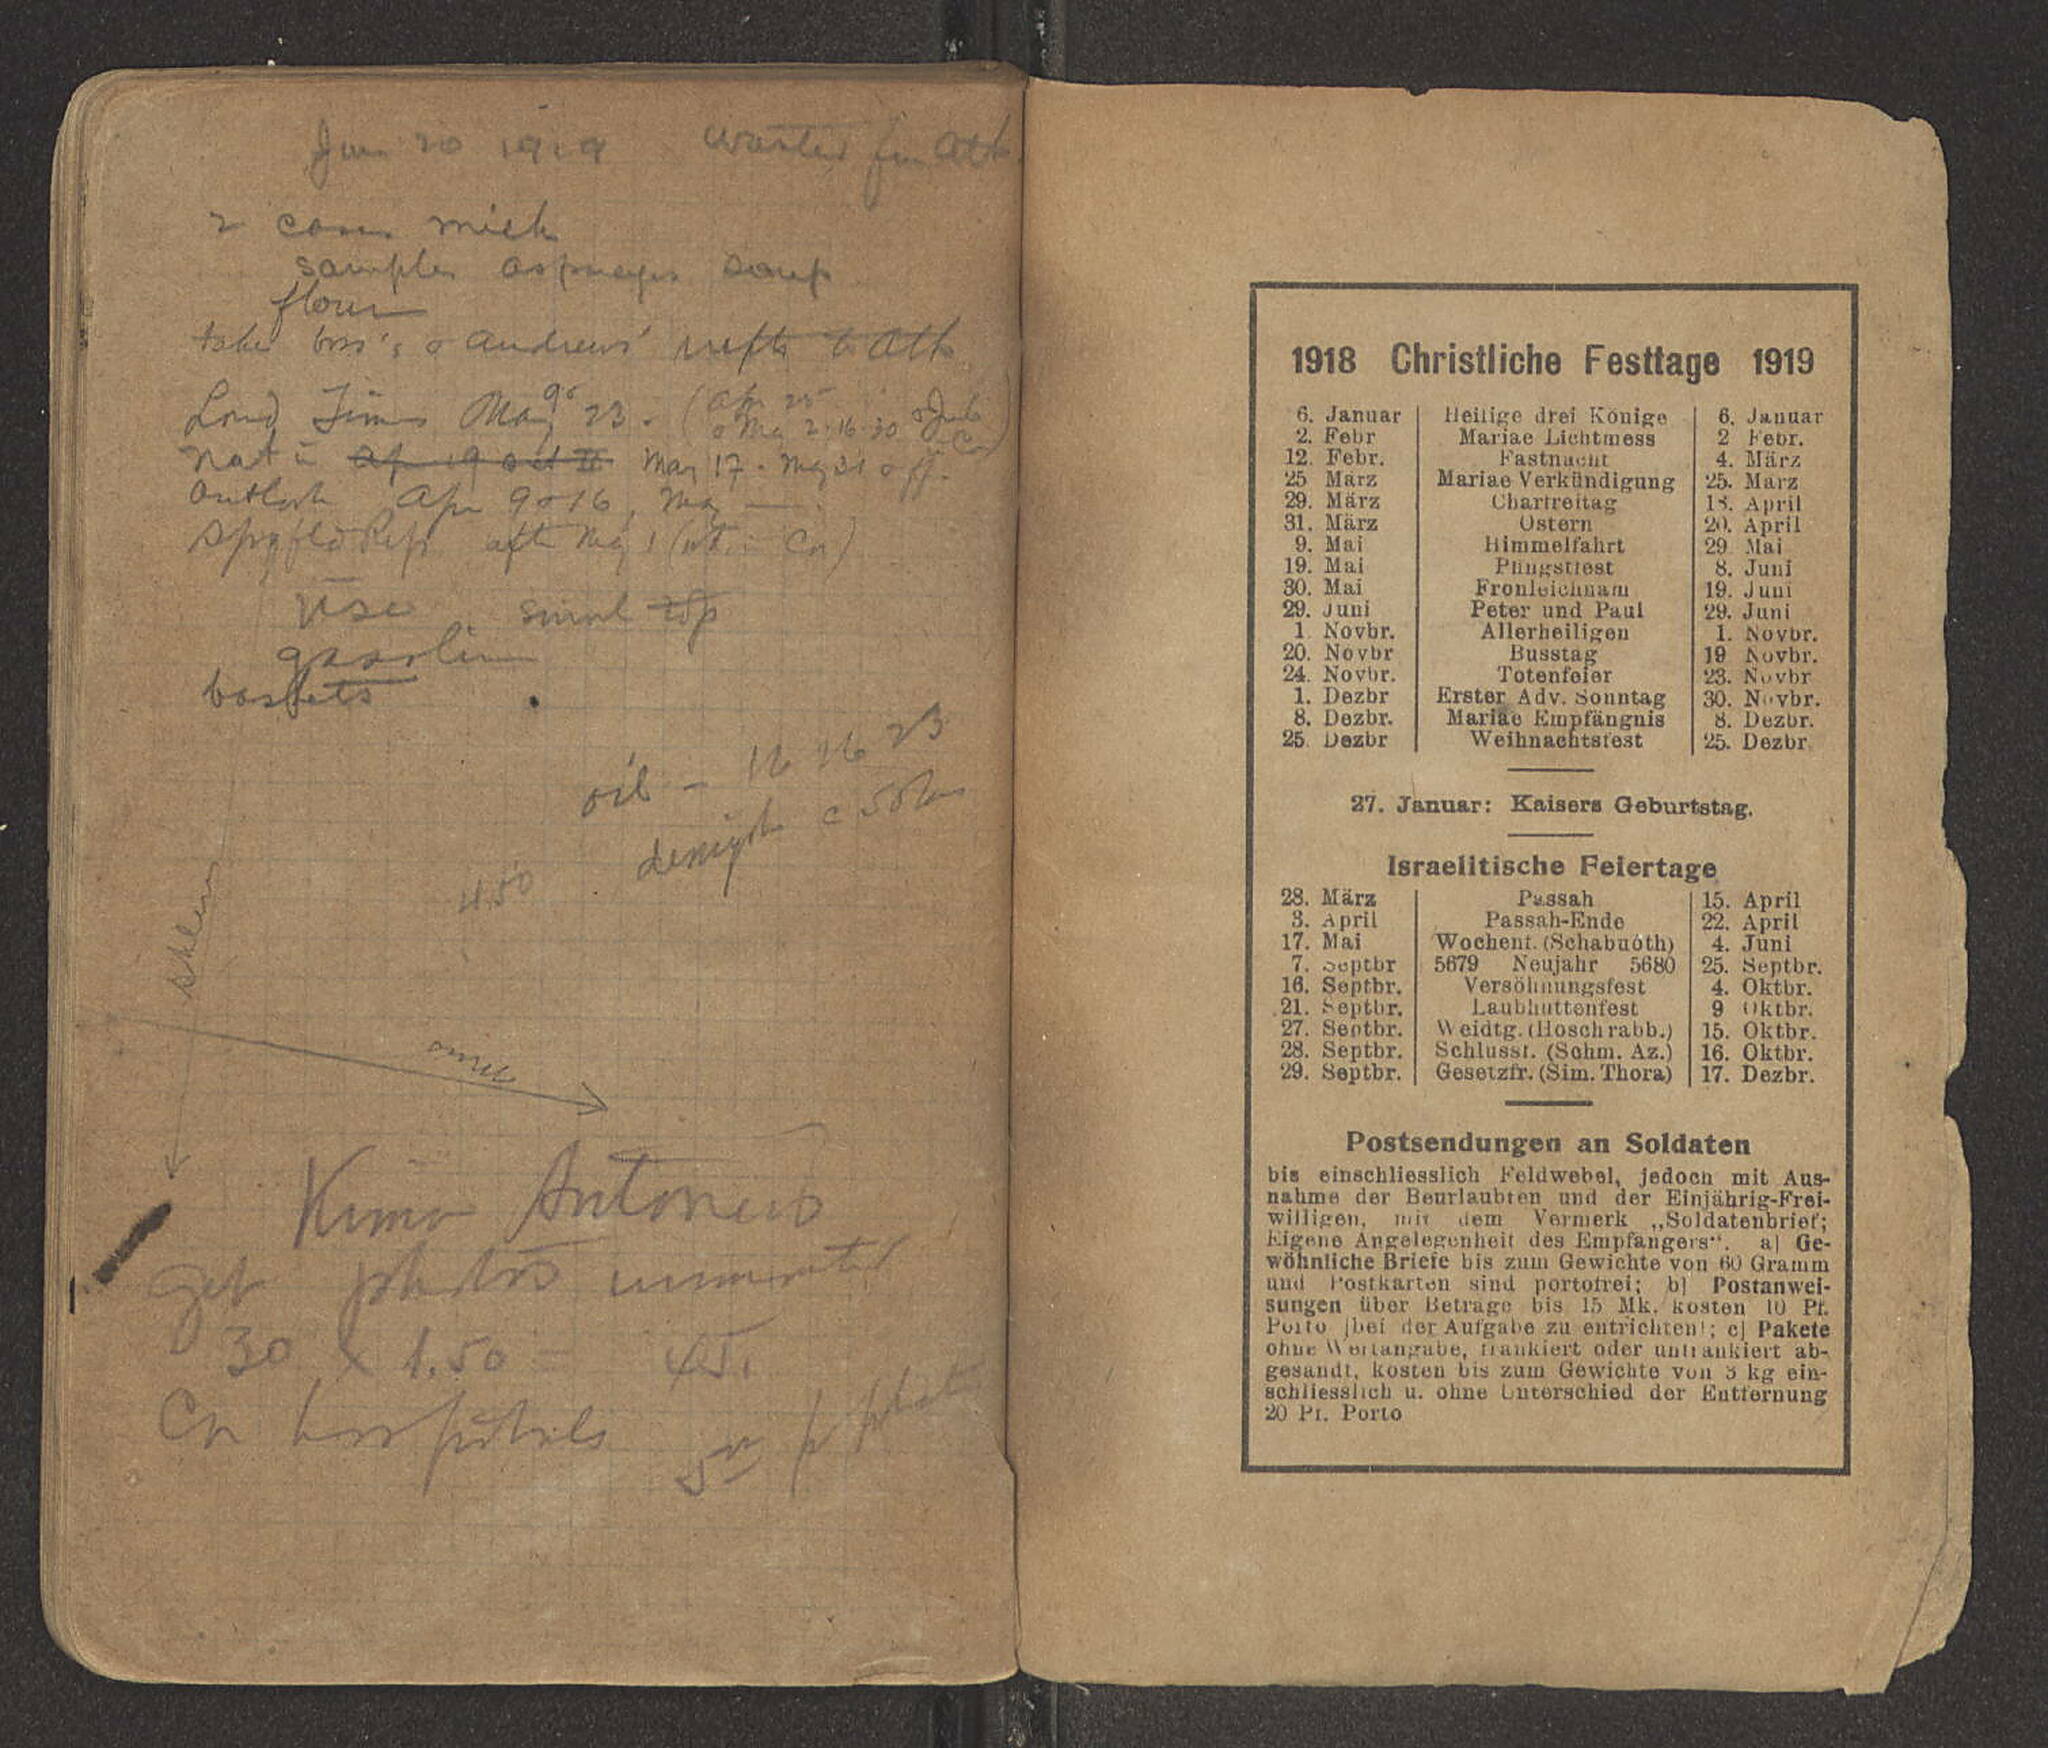 Jun 20 1919 wanted from Ath.
2 cases milk
samples asparagus soup
flour
take boss's & Andrews' to Ath
Lond Times May 9 23. (Apr 25
& May 2. 16. 30 & Jul
Cor)
Nat'n Apr 19 May 17. May 31 off.
Outlook Apr 9 & 16, May —
Spgfld Rep. after May 1 (not in Cor)
small
gasoline
baskets
oil - 16 16 23
450
Antonew
get photos
30 x 1.50 = 45.
Cor hospitals
1918 Christliche Festtage 1919
6. Januar Heilige drei Könige 6. Januar
2. Febr Mariae Lichtmess 2 Febr.
12. Febr. Fastnacht 4. März
25 März Mariae Verkündigung 25. März
29. März Charfreitag 18. April
31. März Ostern 20. April
9. Mai Himmelfahrt 29. Mai
19. Mai Pfingstfest 8. Juni
30. Mai Fronleichnam 19. Juni
29. Juni Peter und Paul 29. Juni
1. Novbr. Allerheiligen 1. Novbr.
20. Novbr Busstag 19 Novbr.
24. Novbr. Totenfeier 23. Novbr
1. Dezbr Erster Adv. Sonntag 30. Novbr.
8. Dezbr. Mariae Empfängnis 8. Dezbr.
25. Dezbr Weihnachtsfest 25. Dezbr
27. Januar: Kaisers Geburtstag.
Israelitische Feiertage
28. März Passah 15. April
3. April Passah-Ende 22. April
17. Mai Wochenf. (Schabuoth) 4. Juni
7. Septbr 5679 Neujahr 5680 25. Septbr.
16. Septbr. Versöhnungsfest 4. Oktbr.
21. Septbr. Laubhüttenfest 9 Oktbr.
27. Septbr. Weidtg. (Hoschrabb.) 15. Oktbr.
28. Septbr. Schlussf. (Schm. Az.) 16. Oktbr.
29. Septbr. Gesetzfr. (Sim. Thora) 17. Dezbr.
Postsendungen an Soldaten
bis einschliesslich Feldwebel, jedoch mit Aus-
nahme der Beurlaubten und der Einjährig-Frei-
willigen, mit dem Vermerk „Soldatenbrief;
Eigene Angelegenheit des Empfängers“. a) Ge-
wöhnliche Briefe bis zum Gewichte von 60 Gramm
und Postkarten sind portofrei; b) Postanwei-
sungen über Beträge bis 15 Mk. kosten 10 Pf.
Porto (bei der Aufgabe zu entrichten); c) Pakete
ohne Wertangabe, frankiert oder unfrankiert ab-
gesandt, kosten bis zum Gewichte von 3 kg ein-
schliesslich u. ohne Unterschied der Entfernung
20 Pf. Porto